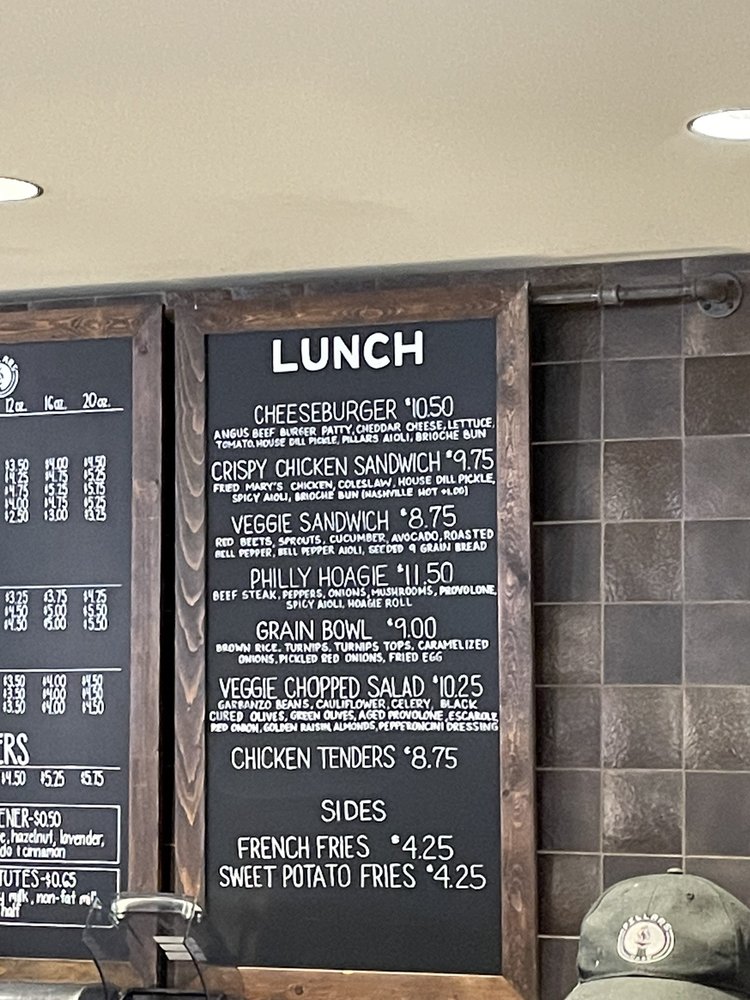 12 oz. 16 oz. 20 oz.
$3.50 $4.00 $4.50
$2.50 $3.00 $3.75
$3.25 $3.75 $4.25
$4.50 $5.00 $5.50
$4.50 $5.00 $5.50
$3.50 $4.00 $4.50
$3.50 $4.00 $4.50
$3.50 $4.00 $4.50
ERS
$4.50 $5.25 $5.75
ENER-$0.50
hazelnut, lavender,
cinnamon
TUTES-$0.65
milk, non-fat milk
half
LUNCH
CHEESEBURGER $10.50
ANGUS BEEF BURGER PATTY, CHEDDAR CHEESE, LETTUCE,
TOMATO, HOUSE DILL PICKLE, PILLARS AIOLI, BRIOCHE BUN
CRISPY CHICKEN SANDWICH $9.75
FRIED MARY'S CHICKEN, COLESLAW, HOUSE DILL PICKLE,
SPICY AIOLI, BRIOCHE BUN (NASHVILLE HOT +1.00)
VEGGIE SANDWICH $8.75
RED BEETS, SPROUTS, CUCUMBER, AVOCADO, ROASTED
BELL PEPPER, BELL PEPPER AIOLI, SEEDED 9 GRAIN BREAD
PHILLY HOAGIE $11.50
BEEF STEAK, PEPPERS, ONIONS, MUSHROOMS, PROVOLONE,
SPICY AIOLI, HOAGIE ROLL
GRAIN BOWL $9.00
BROWN RICE, TURNIPS, TURNIPS TOPS, CARAMELIZED
ONIONS, PICKLED RED ONIONS, FRIED EGG
VEGGIE CHOPPED SALAD $10.25
GARBANZO BEANS, CAULIFLOWER, CELERY, BLACK
CURED OLIVES, GREEN OLIVES, AGED PROVOLONE, ESCAROLE,
RED ONION, GOLDEN RAISIN, ALMONDS, PEPPERONCINI DRESSING
CHICKEN TENDERS $8.75
SIDES
FRENCH FRIES $4.25
SWEET POTATO FRIES $4.25
PILLARS